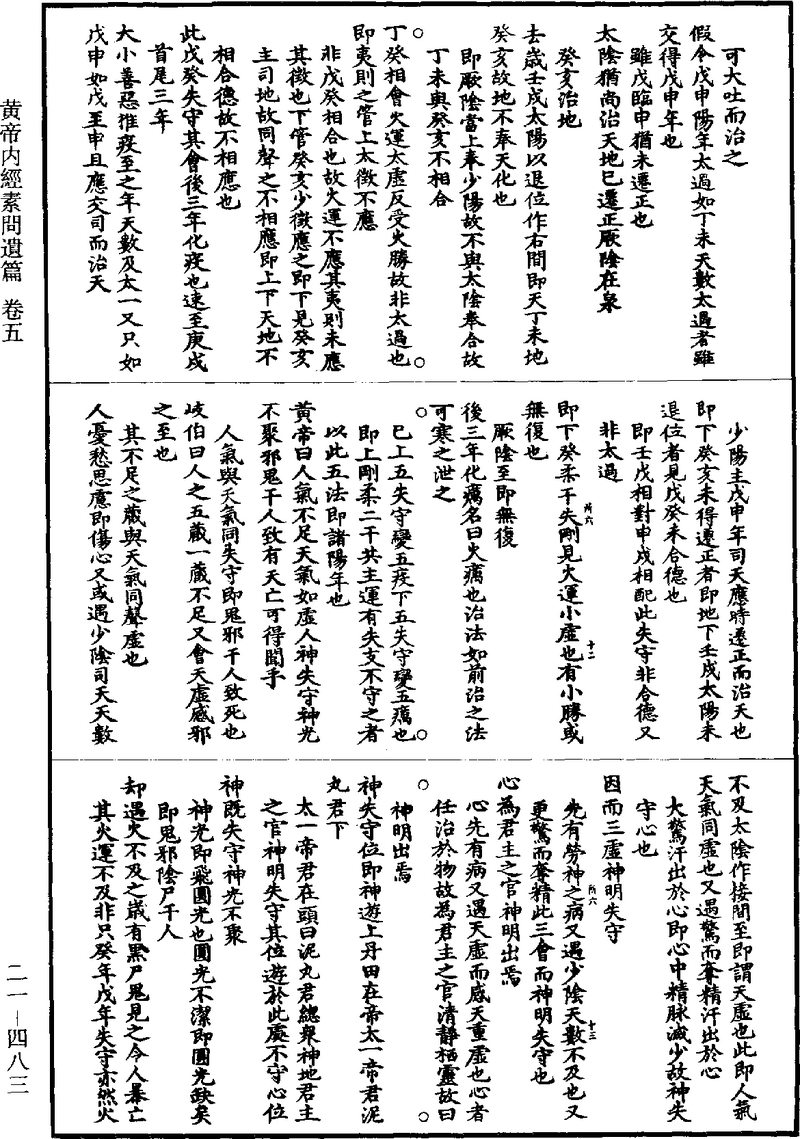 黄帝内經素問遺篇 卷五
可大吐而治之
假令戊申陽年太過如丁未天數太過者雖
交得戊申年也
雖戊臨申猶未遷正也
太陰猶尚治天地已遷正厥陰在泉
癸亥治地
去歲壬戌太陽以退位作右間即天丁未地
癸亥故地不奉天化也
即厥陰當上奉少陽故不與太陰奉合故
丁未與癸亥不相合
丁癸相會火運太虛反受火勝故非太過也
即夷則之管上太徵不應
非戊癸相合也故火運不應其夷則未應
其徵也下管癸亥少徵應之即下見癸亥
主司地故同聲之不相應即上下天地不
相合德故不相應也
此戊癸失守其會後三年化疫也速至庚戌
首尾三年
大小善惡推疫至之年天數及太一又只如
戊申如戊至申且應交司而治天
少陽主戊申年司天應時遷正而治天也
即下癸亥未得遷正者即地下壬戌太陽未
退位者見戊癸未合德也
即壬戊相對申戌相配此失守非合德又
非太過
即下癸柔干失剛見火運小虛也有小勝或
無復也
厥陰至即無復
後三年化癘名曰火癘也治法如前治之法
可寒之泄之
已上五失守變五疫下五失守變五癘也
即上剛柔二干共主運有失支不守之者
以此五法即諸陽年也
黃帝曰人氣不足天氣如虛人神失守神光
不聚邪鬼干人致有夭亡可得聞乎
人氣與天氣同失守即鬼邪干人致死也
岐伯曰人之五藏一藏不足又會天虛感邪
之至也
其不足之藏與天氣同聲虛也
人憂愁思慮即傷心又或遇少陰司天天數
不及太陰作接間至即謂天虛也此即人氣
天氣同虛也又遇驚而奪精汗出於心
大驚汗出於心即心中精脉減少故神失
守心也
因而三虛神明失守
先有勞神之病又遇少陰天數不及也又
更驚而奪精此三會而神明失守也
心為君主之官神明出焉
心先有病又遇天虛而感天重虛也心者
任治於物故為君主之官清静栖靈故曰
神明出焉
神失守位即神遊上丹田在帝太一帝君泥
丸君下
太一帝君在頭曰泥丸君總衆神地君主
之官神明失守其位遊於此處不守心位
神既失守神光不聚
神光即飛圓光也圓光不潔即圓光缺矣
即鬼邪陰尸干人
却遇火不及之歲有黑尸鬼見之令人暴亡
其火運不及非只癸年戊年失守亦然火
二一—四八三